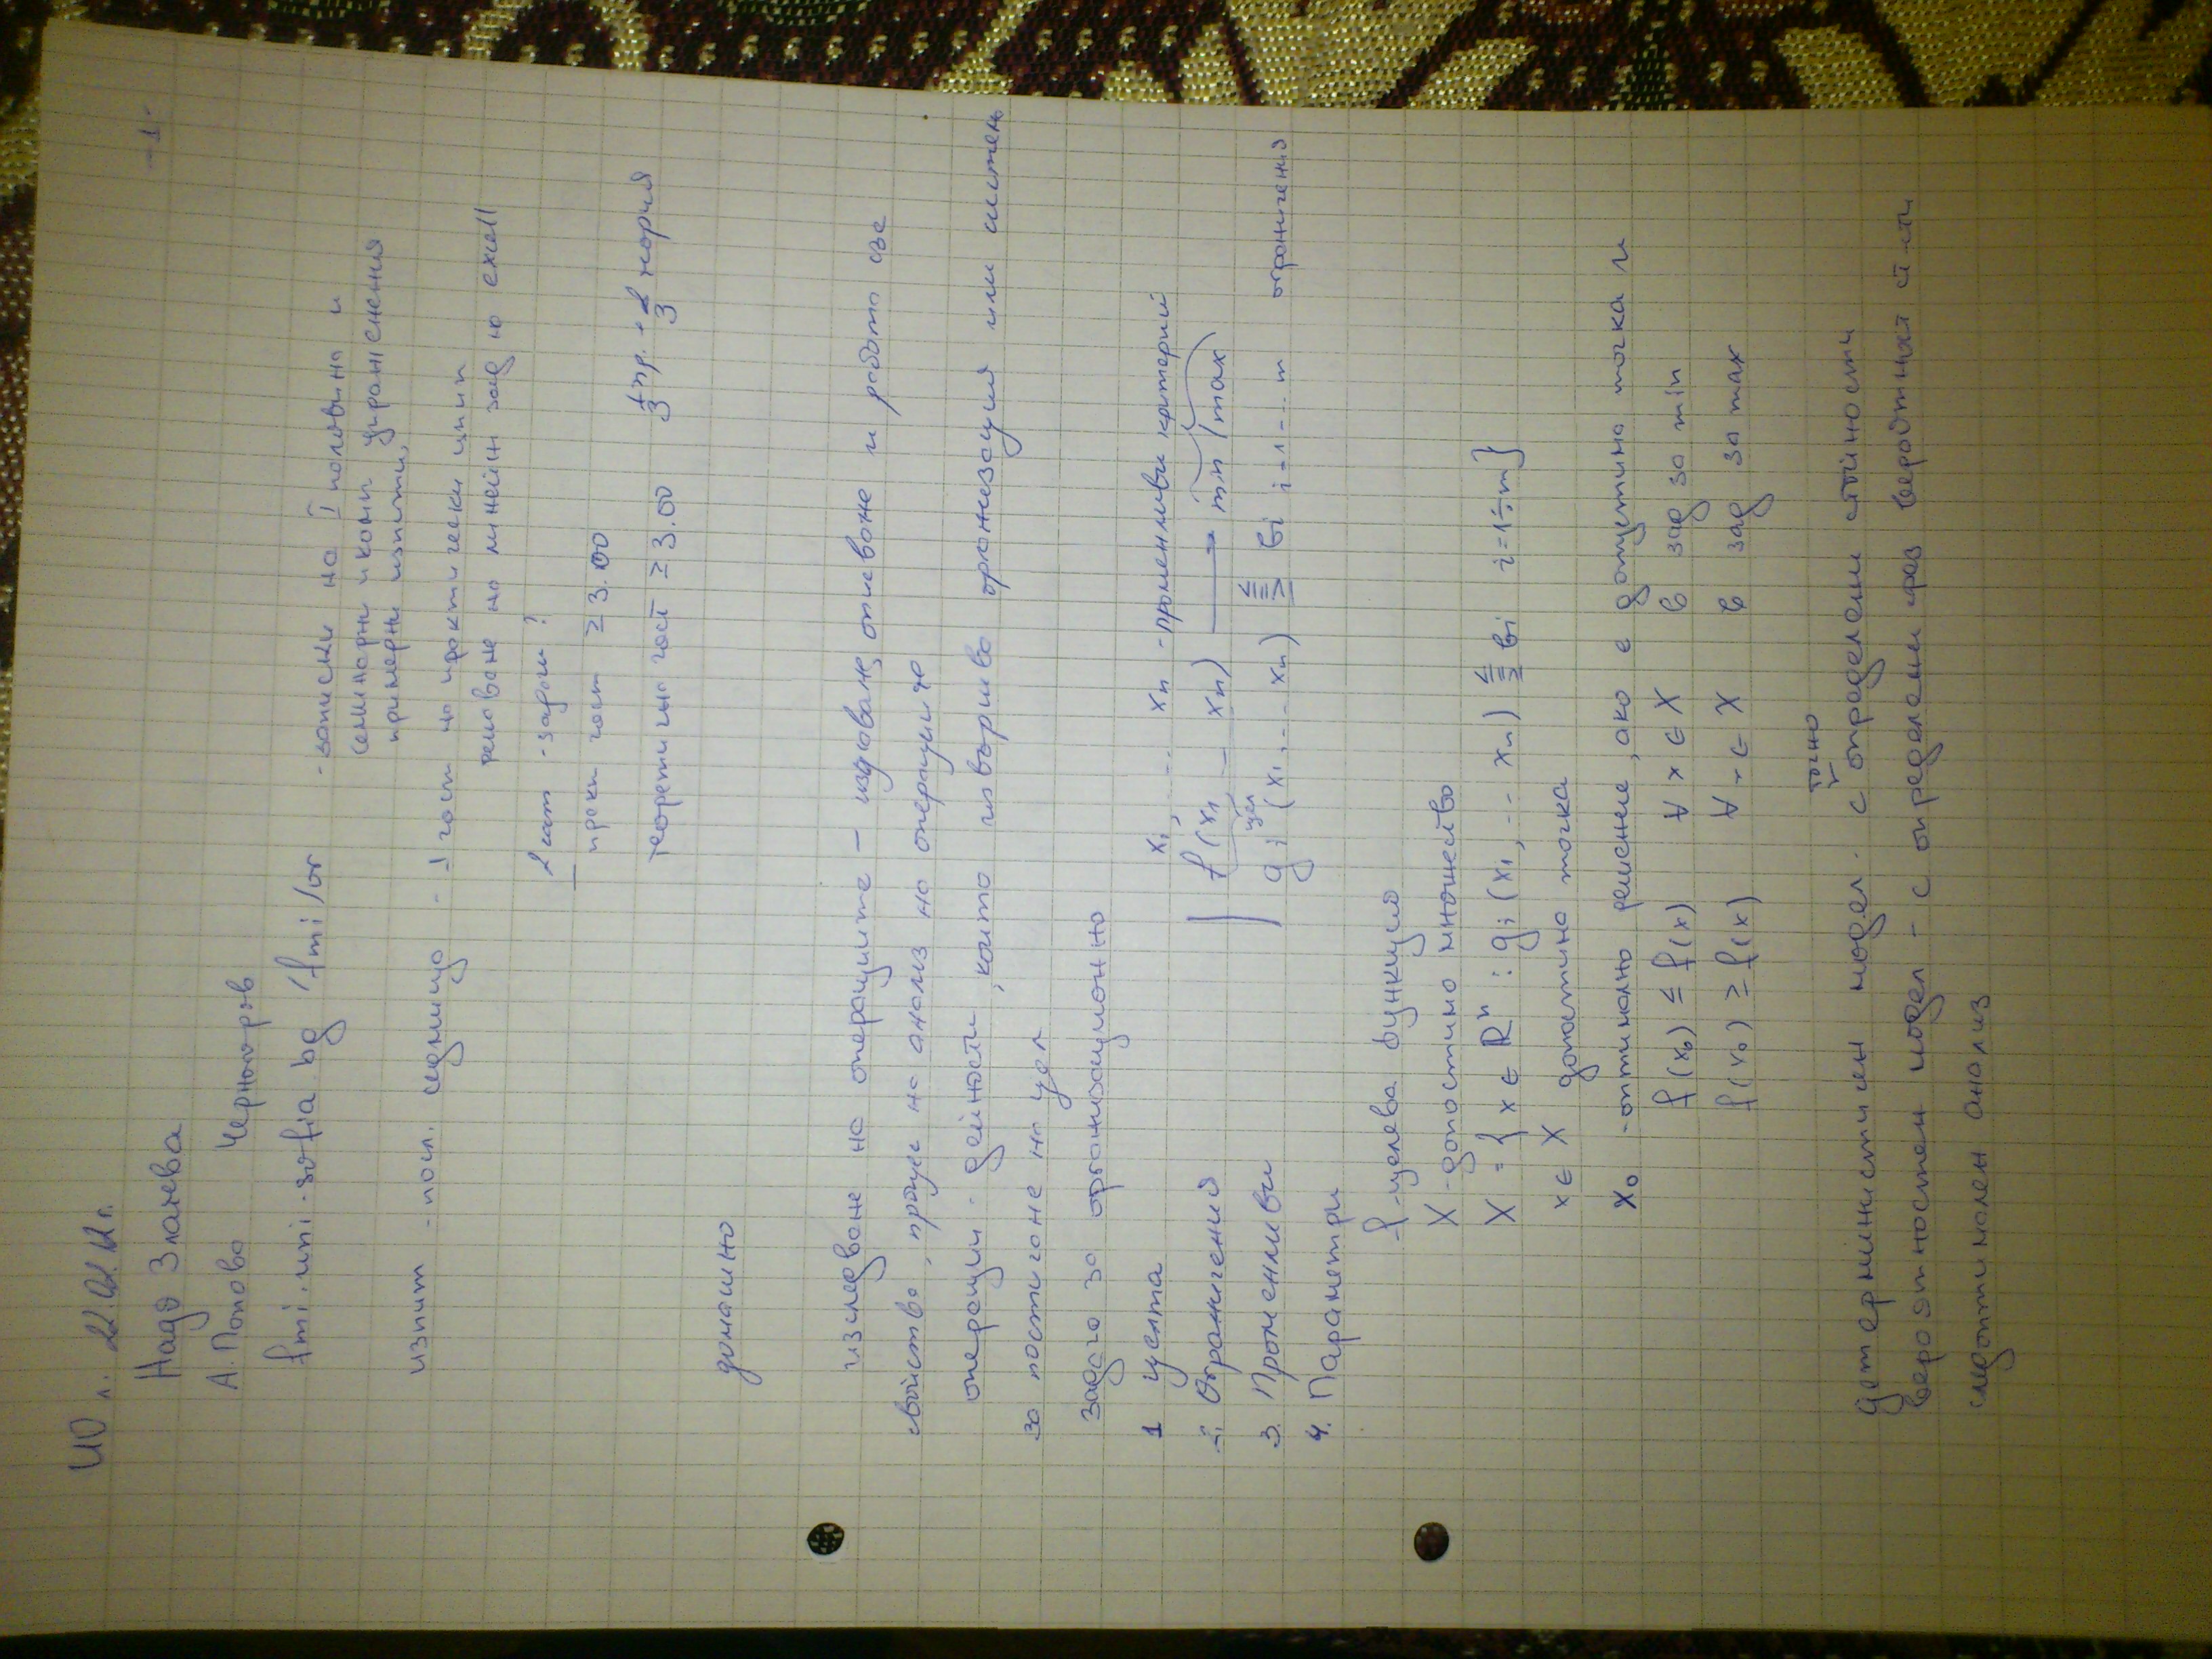 -1-
ИО л. 22.02.12г.
Надя Златева
А. Попова Черногоров
fmi.uni-sofia bg /fmi/or - записки на I половина и
семинарни и комп упражнения
примерни изпити,
изпит - посл. седмица - I част на практически изпит
решаване на линейн зад на exell
2 част - задачи ?
практ част ≥ 3.00
теоретична част ≥ 3.00 1/3 пр. + 2/3 теория
домашно
изследване на операциите - издаване, описване и работа със
свойства, процес на анализ на операциите
операции - дейности, които извършва организация или систем
за постигане на цел
задача за организационно
1 целта x1, ... xn - променливи критерий
2. Ограничения f(x1, ... xn) → min (max
3. Променливи цел gi (x1, ... xn) ≤ = ≥ bi i=1...m ограничения
4. Параметри
f - целева функция
X - допустимо множество
X = { x ∈ ℝⁿ : gi (x1, ... xn) ≤ = ≥ bi i=1÷m }
x ∈ X допустима точка
x0 - оптимално решение, ако е допустима точка и
f(x0) ≤ f(x) ∀ x ∈ X в зад за min
f(x0) ≥ f(x) ∀ x ∈ X в зад за max
точно
детерминистичен модел - с определени стойности
вероятностен модел - с определени вероятност ст-ти
следоптимален анализ